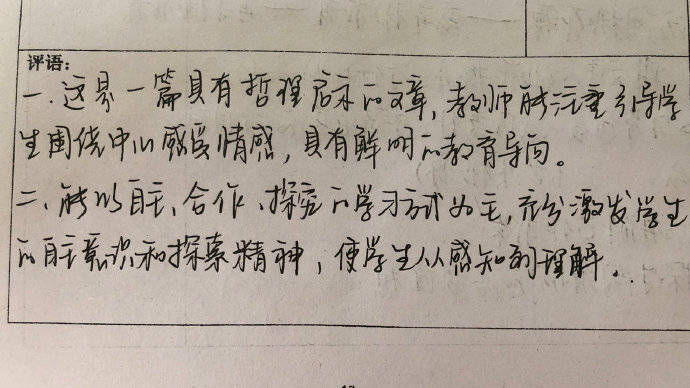 评语：
一、这是一篇具有哲理启示的文章，教师能注重引导学
生围绕中心感受情感，具有鲜明的教育导向。
二、能以自主、合作、探究的学习方式为主，充分激发学生
的自主意识和探索精神，使学生从感知到理解。